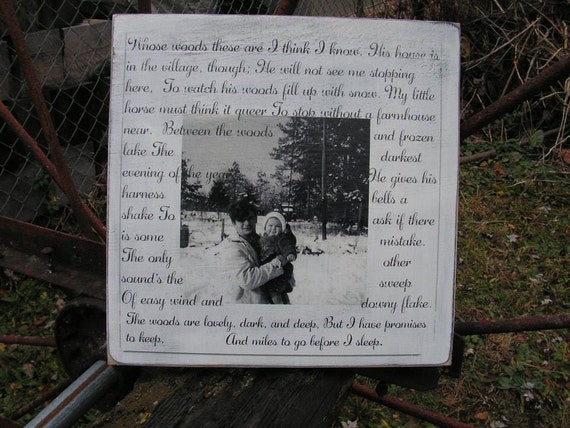 Whose woods these are I think I know. His house is
in the village, though; He will not see me stopping
here. To watch his woods fill up with snow. My little
horse must think it queer To stop without a farmhouse
near. Between the woods and frozen
lake The darkest
evening of the year He gives his
harness bells a
shake To ask if there
is some mistake.
The only other
sound's the sweep
Of easy wind and downy flake.
The woods are lovely, dark, and deep, But I have promises
to keep, And miles to go before I sleep.